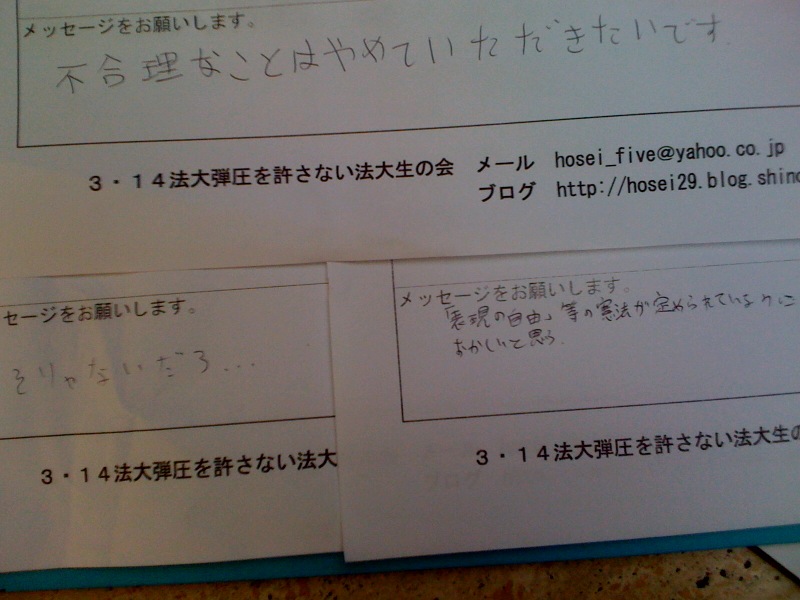 メッセージをお願いします。
不合理なことはやめていただきたいです.
3・14法大弾圧を許さない法大生の会 メール hosei_five@yahoo.co.jp
ブログ http://hosei29.blog.shino
セージをお願いします。
そりゃないだろ...
3・14法大弾圧を許さない法大
メッセージをお願いします。
「表現の自由」等の憲法が定められているのに
おかしいと思う.
3・14法大弾圧を許さない法大生の